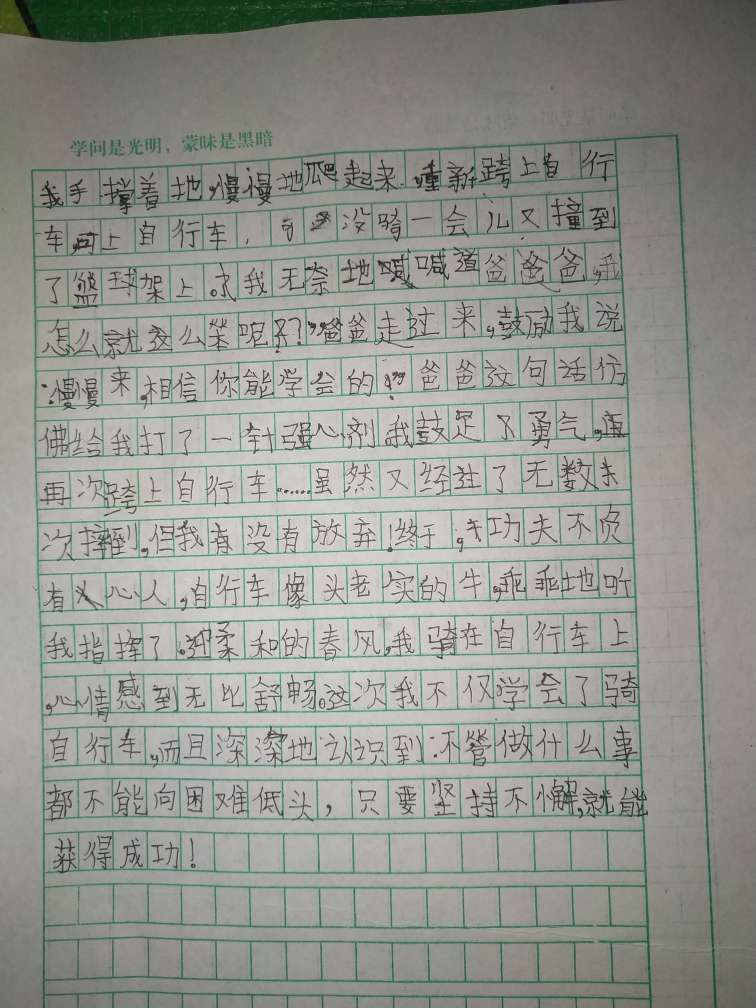 学问是光明，蒙昧是黑暗
我手撑着地，慢慢地爬起来，重新跨上自行
车，向上自行车，可没骑一会儿又撞到
了篮球架上。我无奈地喊喊道爸爸爸，我
怎么就这么笨呢？？”爸爸走过来，鼓励我说
：“慢慢来，相信你能学会的。”爸爸这句话仿
佛给我打了一针强心剂，我鼓足了勇气，
再次跨上自行车……虽然又经过了无数
次摔倒，但我有没有放弃！终于，功夫不负
有心人，自行车像头老实的牛，乖乖地听
我指挥了。迎柔和的春风，我骑在自行车上
，心情感到无比舒畅。这次我不仅学会了骑
自行车，而且深深地认识到：不管做什么事
都不能向困难低头，只要坚持不懈，就能
获得成功！